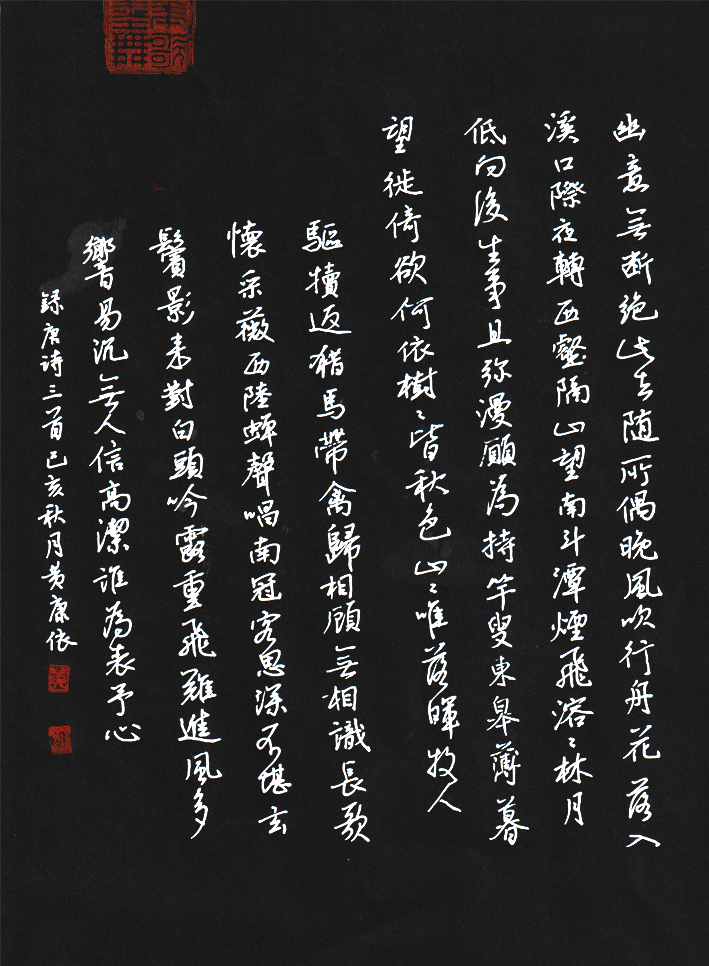 幽意無断絶此去随所偶晚風吹行舟花落入
溪口際夜轉西壑隔山望南斗潭煙飛溶〻林月
低向後生事且弥漫願為持竿叟東皋薄暮
望徙倚欲何依樹〻皆秋色山〻唯落暉牧人
驅犢返猎馬帶禽歸相顧無相識長歌
懷采薇西陸蝉聲唱南冠客思深不堪玄
鬢影来對白頭吟露重飛難進風多
響易沉無人信高潔誰為表予心
録唐诗三首己亥秋月黄康依